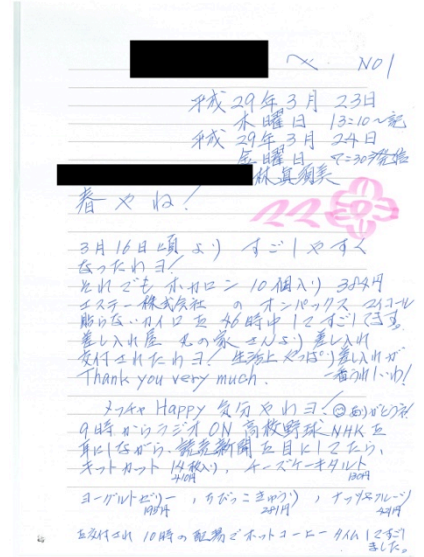 へ NO1
平成29年3月23日
木曜日 13:10〜記
平成29年3月24日
金曜日 7:30発信
林眞須美
春やね!
ママ
3月16日頃よりすごしやすく
なったわヨ!
それでもホカロン10個入り384円
エステー株式会社のオンパックス マイコール
貼らないカイロを46時中1てすごしてます。
差し入れ屋さんより差し入れ
交付されたわヨ!生活上やっぱり差し入れが
Thank you very much. 一番うれしいわ!
メッチャHappy気分やわヨ!ありがとうネ!
9時からラジオON高校野球NHKを
耳にしながら、読売新聞を目にしてたら、
キットカット14枚入り、チーズケーキタルト
410円 130円
ヨーグルトゼリー、ちびっこきゅうり、ナッツ&フルーツ
198円 281円
を交付され10時の配湯でホットコーヒータイムしてすごし
ました。